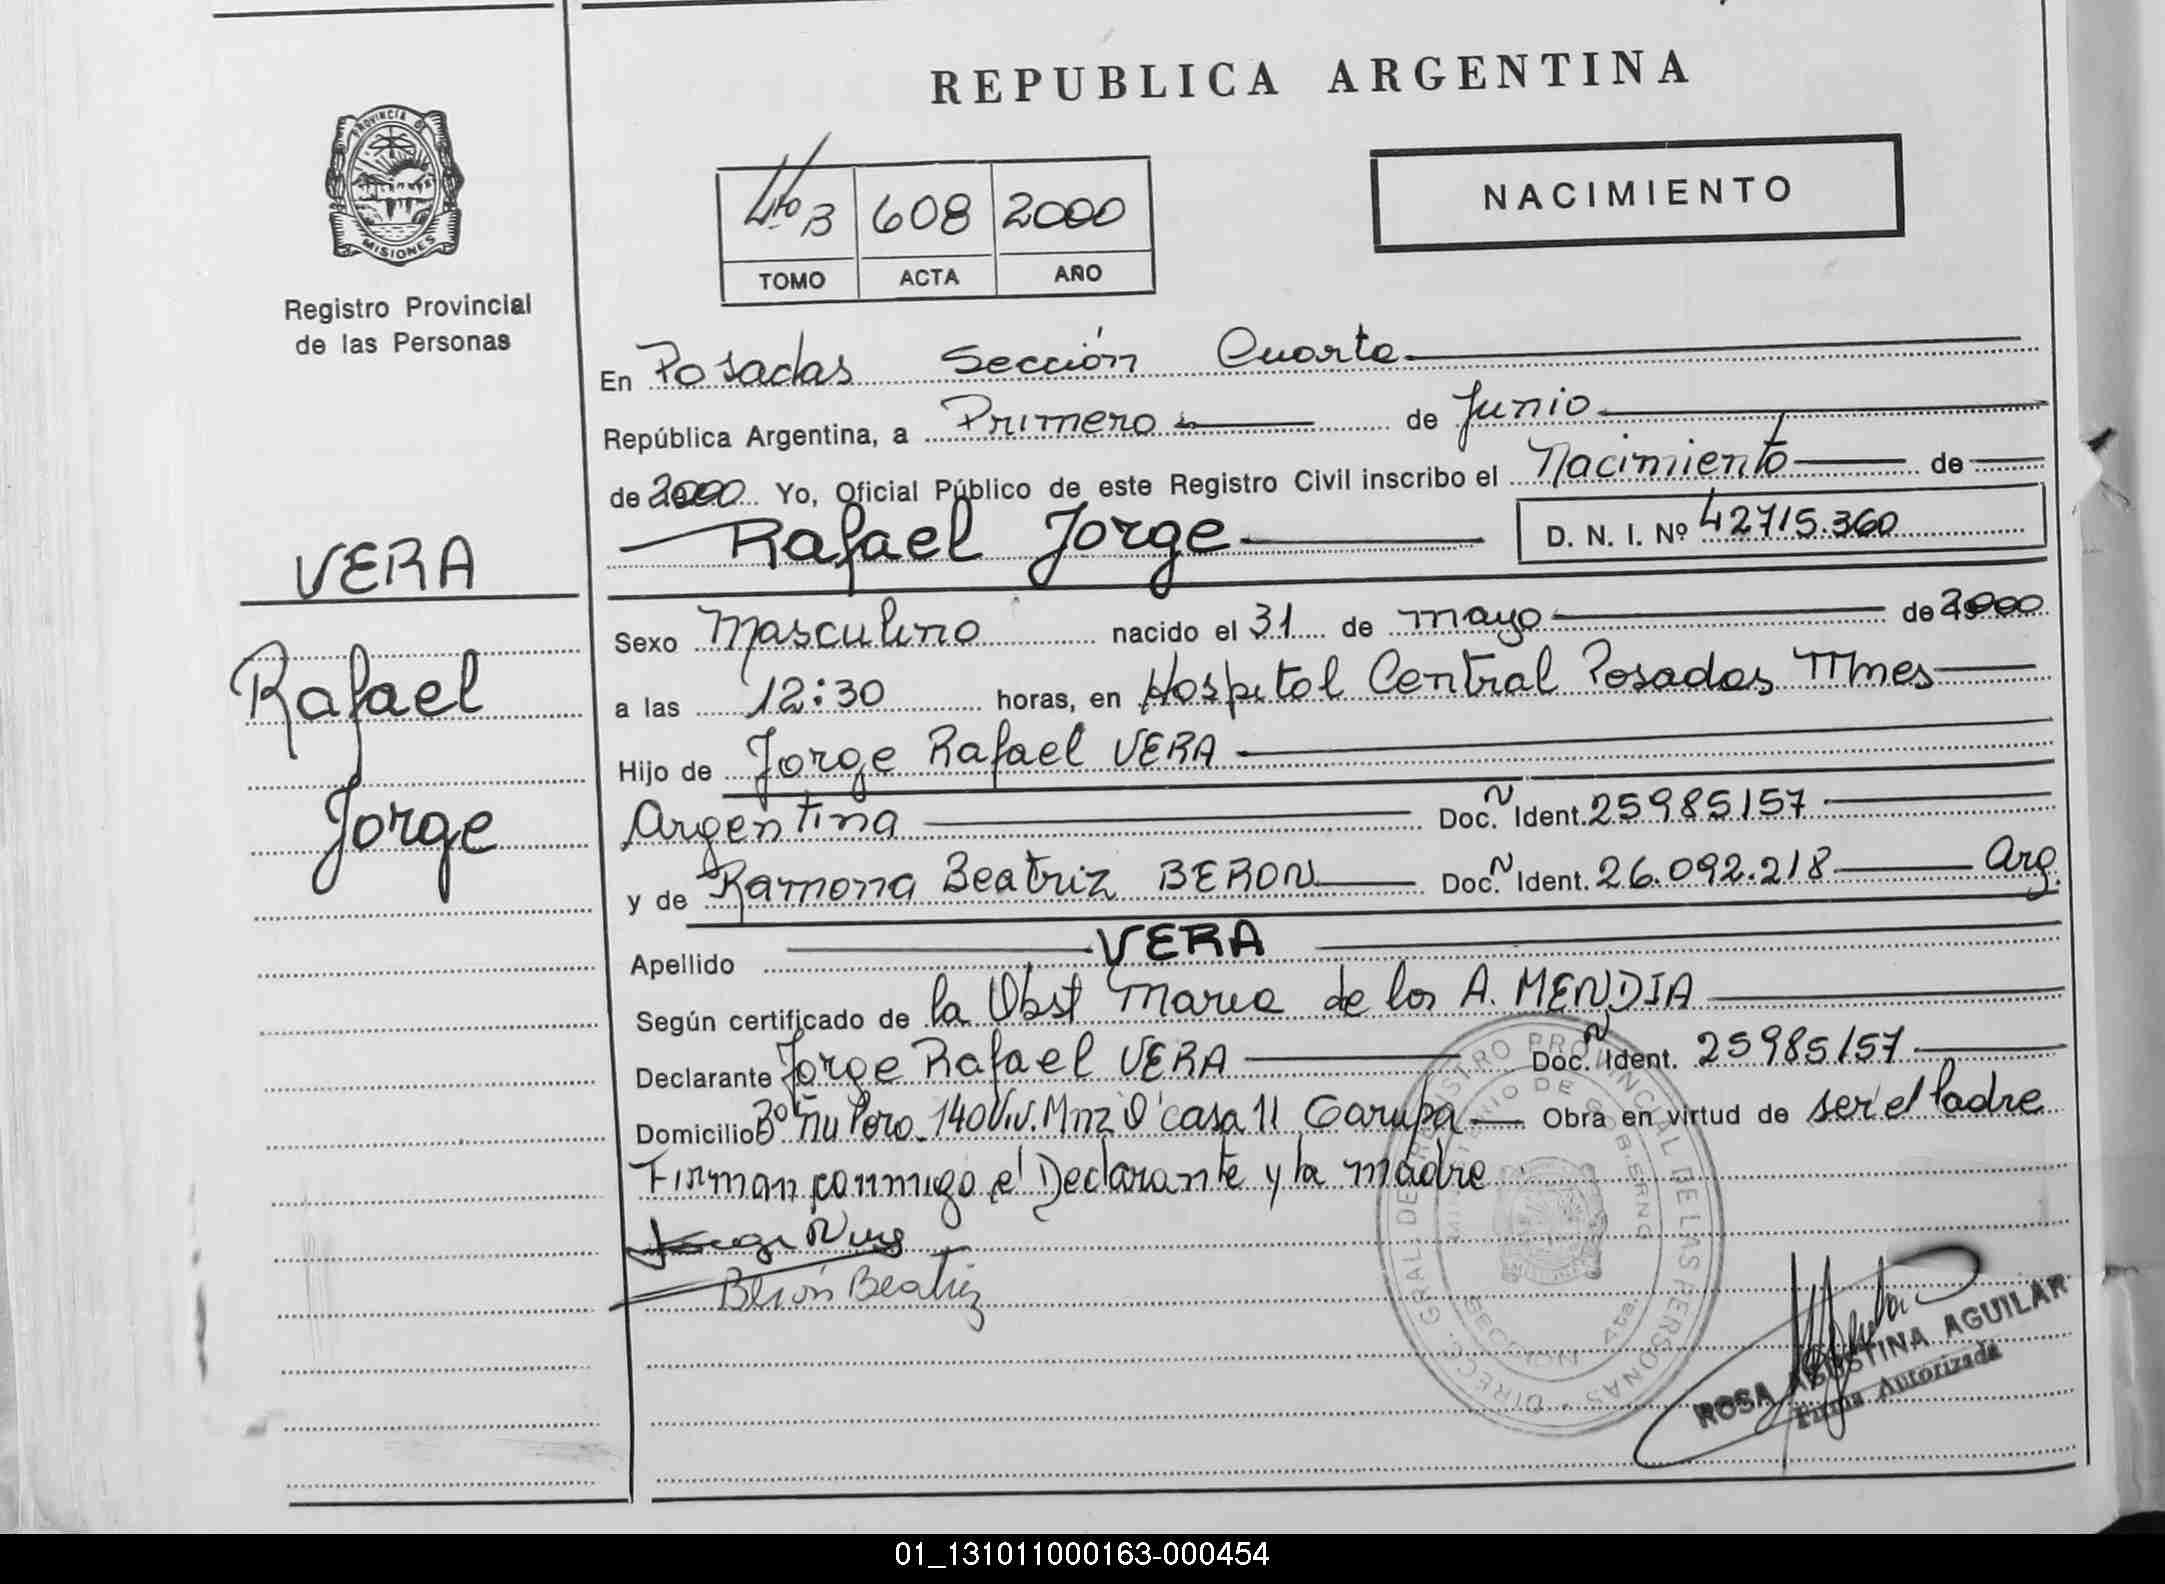 REPUBLICA ARGENTINA
PROVINCIA DE
MISIONES
Registro Provincial
de las Personas
NACIMIENTO
4to B 608 2000
TOMO ACTA AÑO
En Posadas Sección Cuarta
República Argentina, a Primero de Junio
de 2000 Yo, Oficial Público de este Registro Civil inscribo el Nacimiento de
Rafael Jorge D. N. I. Nº 42715.360
VERA
Rafael
Jorge
Sexo Masculino nacido el 31 de mayo de 2000
a las 12:30 horas, en Hospital Central Posadas Mnes
Hijo de Jorge Rafael VERA
Argentina Doc. N Ident. 25985157
y de Ramona Beatriz BERON Doc. N Ident. 26.092.218 Arg.
Apellido VERA
Según certificado de la Obst Maria de los A. MENDIA
Declarante Jorge Rafael VERA Doc. N Ident. 25985157
Domicilio Bº Ñu Poro 140 Viv. Mnz casa 11 Garupa Obra en virtud de ser el Padre
Firman conmigo el Declarante y la madre
Berón Beatriz
DIRECC. GRAL. DE REGISTRO PROVINCIAL DE LAS PERSONAS
MINISTERIO DE GOBIERNO
SECCION 4ta
ROSA AGUSTINA AGUILAR
Firma Autorizada
01_131011000163-000454